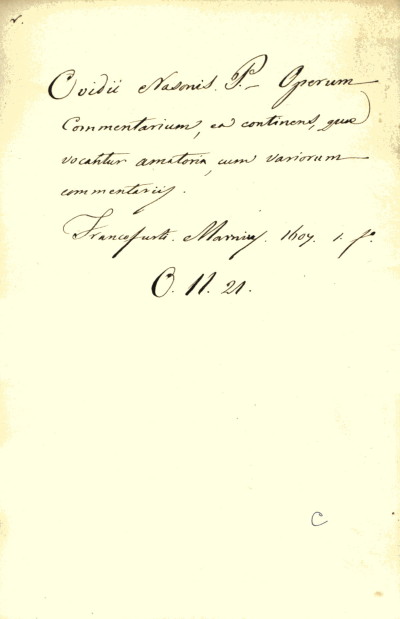 v.
Ovidii Nasonis. P.– Operum
Commentarium, ea continens, quae
vocantur amatoria, cum variorum
commentariis.
Francofurti. Marnius. 1607. 1. fo.
O. 11. 21.
C